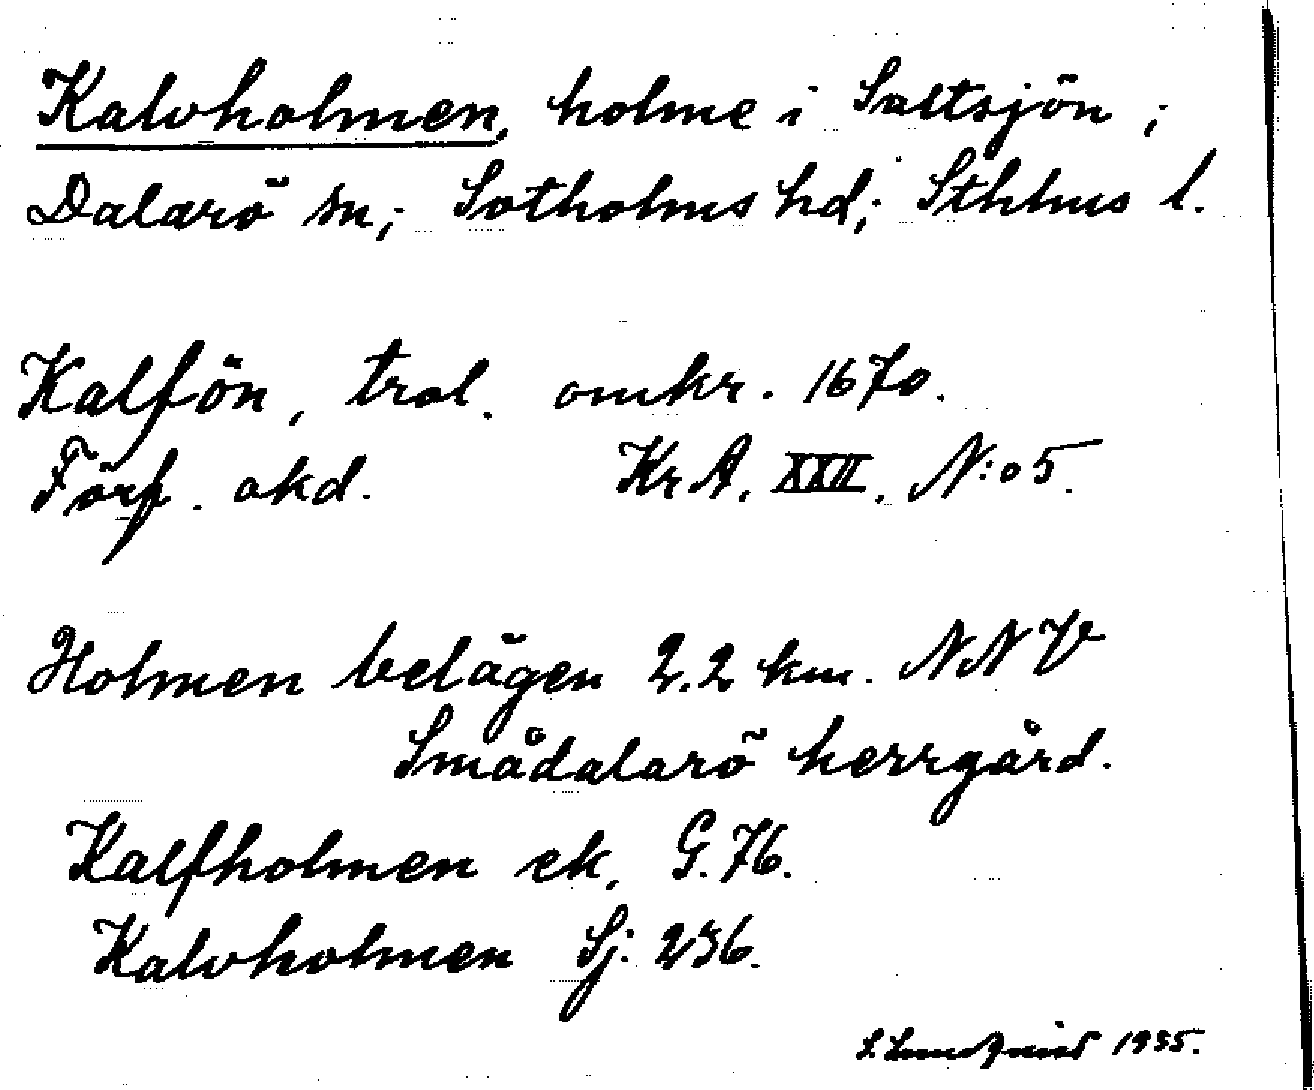 Kalvholmen, holme i Saltsjön;
Dalarö sn; Sotholms hd; Sthlms l.
Kalfön, trol. omkr. 1670.
Förf. okd. Kr A. XXII. N:o 5.
Holmen belägen 2.2 km. NNV
Smådalarö herrgård.
Kalfholmen ek. G. 76.
Kalvholmen Sj: 236.
S. Lundqvist 1935.